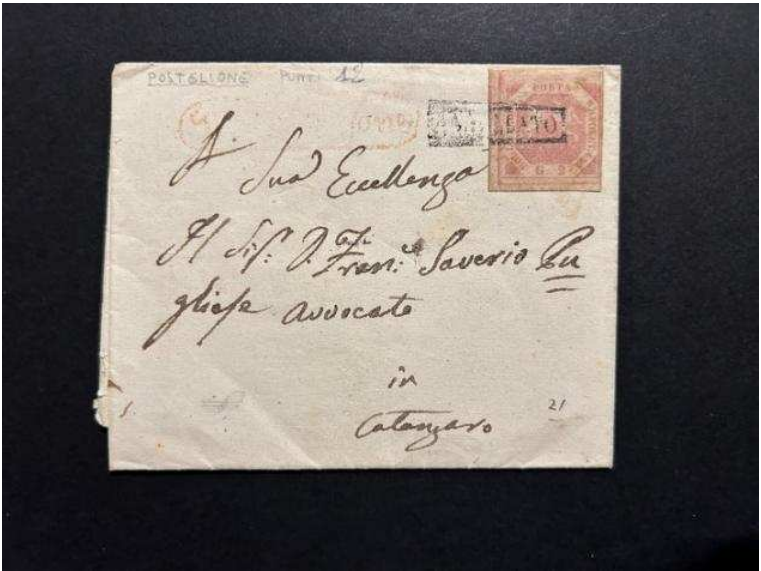 POSTGLIONE PUNTI 12
ANNULLATO
POSTA
G 2
A.
Sua Eccellenza
Il Sig: D. Fran: Saverio Pu
gliese avvocato
in
Catanzaro
21